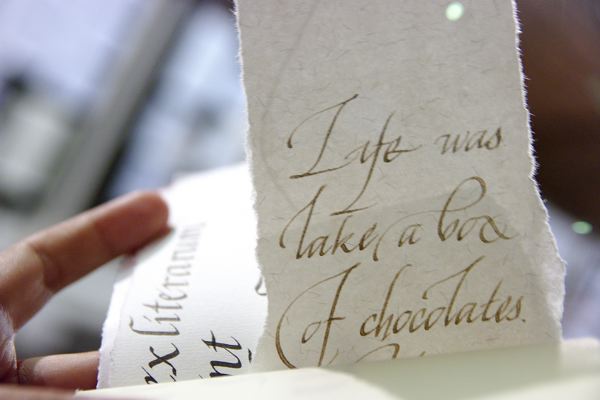 Life was
like a box
of chocolates.
rx literarum
nt